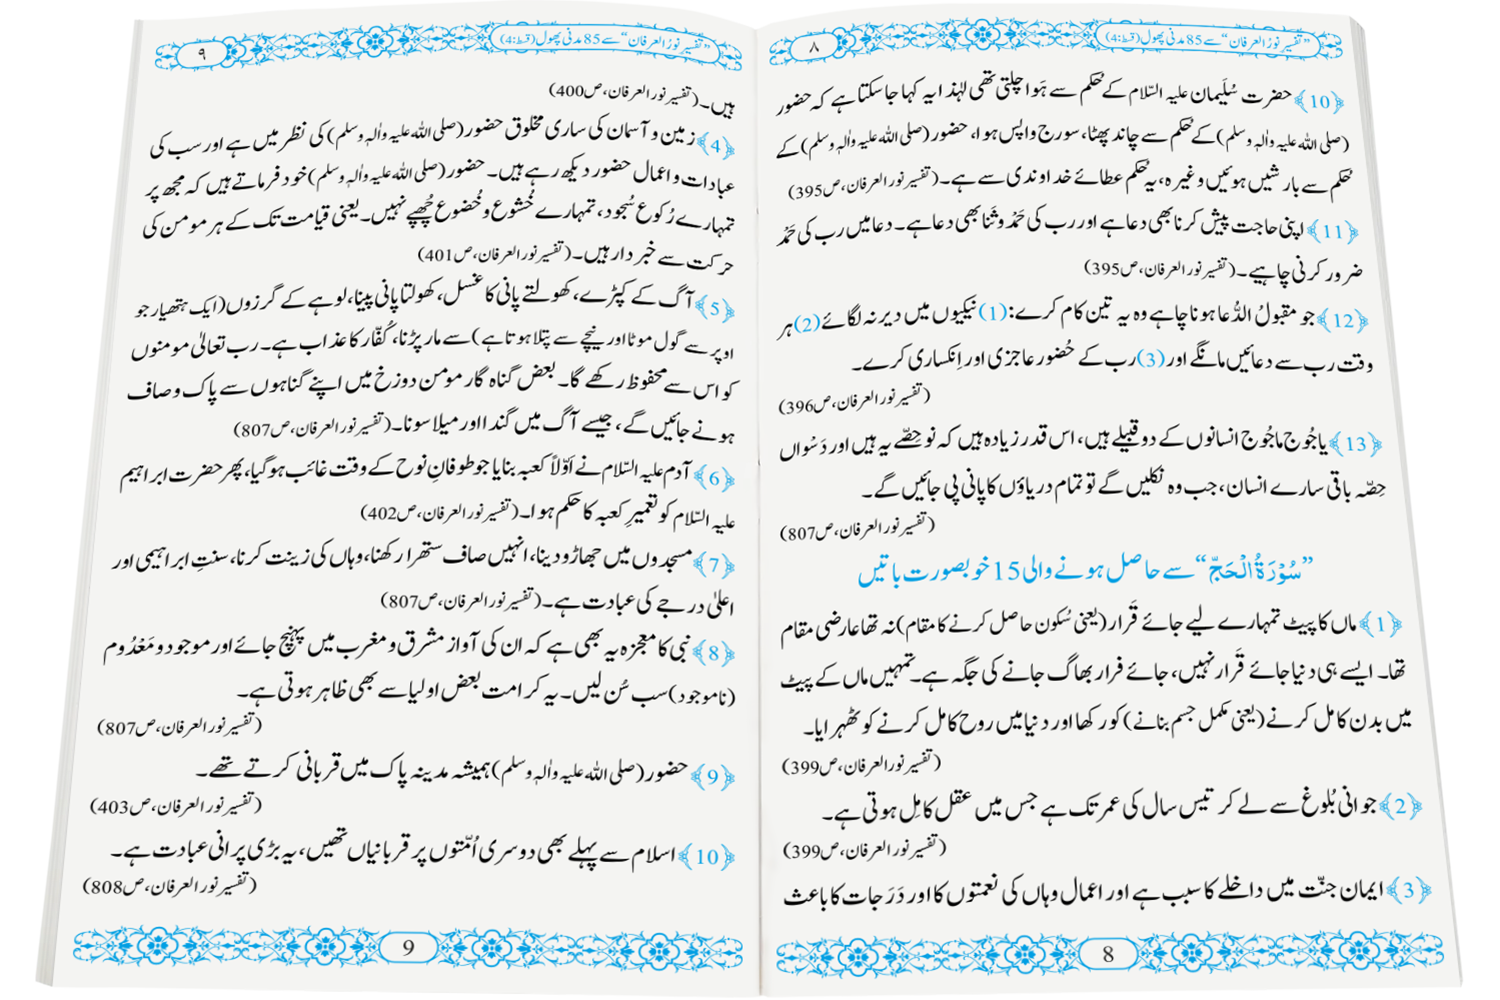 ”تفسیر نورُ العرفان“ سے 85 مدنی پھول (قسط:4)
۸
﴿10﴾ حضرت سُلَیمان علیہ السّلام کے حُکم سے ہَوا چلتی تھی لہٰذا یہ کہا جاسکتا ہے کہ حضور
(صلی اللہ علیہ واٰلہٖ وسلم) کے حُکم سے چاند پھٹا، سورج واپس ہوا، حضور (صلی اللہ علیہ واٰلہٖ وسلم) کے
حُکم سے بارشیں ہوئیں وغیرہ، یہ حُکم عطائے خداوندی سے ہے۔ (تفسیر نور العرفان، ص395)
﴿11﴾ اپنی حاجت پیش کرنا بھی دعا ہے اور رب کی حَمْد و ثَنا بھی دعا ہے۔ دعا میں رب کی حَمْد
ضرور کرنی چاہیے۔ (تفسیر نور العرفان، ص395)
﴿12﴾ جو مقبولُ الدُّعا ہونا چاہے وہ یہ تین کام کرے: (1) نیکیوں میں دیر نہ لگائے (2) ہر
وقت رب سے دعائیں مانگے اور (3) رب کے حُضور عاجزی اور اِنکساری کرے۔
(تفسیر نور العرفان، ص396)
﴿13﴾ یاجُوج ماجُوج انسانوں کے دو قبیلے ہیں، اس قدر زیادہ ہیں کہ نو حِصّے یہ ہیں اور دَسْواں
حِصّہ باقی سارے انسان، جب وہ نکلیں گے تو تمام دریاؤں کا پانی پی جائیں گے۔
(تفسیر نور العرفان، ص807)
”سُوْرَۃُ الْحَجّ“ سے حاصل ہونے والی 15 خوبصورت باتیں
﴿1﴾ ماں کا پیٹ تمہارے لیے جائے قَرار (یعنی سُکون حاصل کرنے کا مقام) نہ تھا عارضی مقام
تھا۔ ایسے ہی دنیا جائے قَرار نہیں، جائے فرار بھاگ جانے کی جگہ ہے۔ تمہیں ماں کے پیٹ
میں بدن کامل کرنے (یعنی مکمل جسم بنانے) کو رکھا اور دنیا میں روح کامل کرنے کو ٹھہرایا۔
(تفسیر نور العرفان، ص399)
﴿2﴾ جوانی بُلوغ سے لے کر تیس سال کی عمر تک ہے جس میں عقل کامِل ہوتی ہے۔
(تفسیر نور العرفان، ص399)
﴿3﴾ ایمان جنّت میں داخلے کا سبب ہے اور اعمال وہاں کی نعمتوں کا اور دَرَجات کا باعث
8
”تفسیر نورُ العرفان“ سے 85 مدنی پھول (قسط:4)
۹
ہیں۔ (تفسیر نور العرفان، ص400)
﴿4﴾ زمین و آسمان کی ساری مخلوق حضور (صلی اللہ علیہ واٰلہٖ وسلم) کی نظر میں ہے اور سب کی
عبادات و اعمال حضور دیکھ رہے ہیں۔ حضور (صلی اللہ علیہ واٰلہٖ وسلم) خود فرماتے ہیں کہ مجھ پر
تمہارے رُکوع سُجود، تمہارے خُشوع و خُضوع چُھپے نہیں۔ یعنی قیامت تک کے ہر مومن کی
حرکت سے خبردار ہیں۔ (تفسیر نور العرفان، ص401)
﴿5﴾ آگ کے کپڑے، کھولتے پانی کا غسل، کھولتا پانی پینا، لوہے کے گرزوں (ایک ہتھیار جو
اوپر سے گول موٹا اور نیچے سے پتلا ہوتا ہے) سے مار پڑنا، کُفّار کا عذاب ہے۔ رب تعالیٰ مومنوں
کو اس سے محفوظ رکھے گا۔ بعض گناہ گار مومن دوزخ میں اپنے گناہوں سے پاک و صاف
ہونے جائیں گے، جیسے آگ میں گندا اور میلا سونا۔ (تفسیر نور العرفان، ص807)
﴿6﴾ آدم علیہ السّلام نے اَوّلاً کعبہ بنایا جو طوفانِ نوح کے وقت غائب ہوگیا، پھر حضرت ابراہیم
علیہ السّلام کو تعمیرِ کعبہ کا حکم ہوا۔ (تفسیر نور العرفان، ص402)
﴿7﴾ مسجدوں میں جھاڑو دینا، انہیں صاف ستھرا رکھنا، وہاں کی زینت کرنا، سنتِ ابراہیمی اور
اعلیٰ درجے کی عبادت ہے۔ (تفسیر نور العرفان، ص807)
﴿8﴾ نبی کا معجزہ یہ بھی ہے کہ ان کی آواز مشرق و مغرب میں پہنچ جائے اور موجود و مَعْدُوم
(نا موجود) سب سُن لیں۔ یہ کرامت بعض اولیا سے بھی ظاہر ہوتی ہے۔
(تفسیر نور العرفان، ص807)
﴿9﴾ حضور (صلی اللہ علیہ واٰلہٖ وسلم) ہمیشہ مدینہ پاک میں قربانی کرتے تھے۔
(تفسیر نور العرفان، ص403)
﴿10﴾ اسلام سے پہلے بھی دوسری اُمّتوں پر قربانیاں تھیں، یہ بڑی پرانی عبادت ہے۔
(تفسیر نور العرفان، ص808)
9